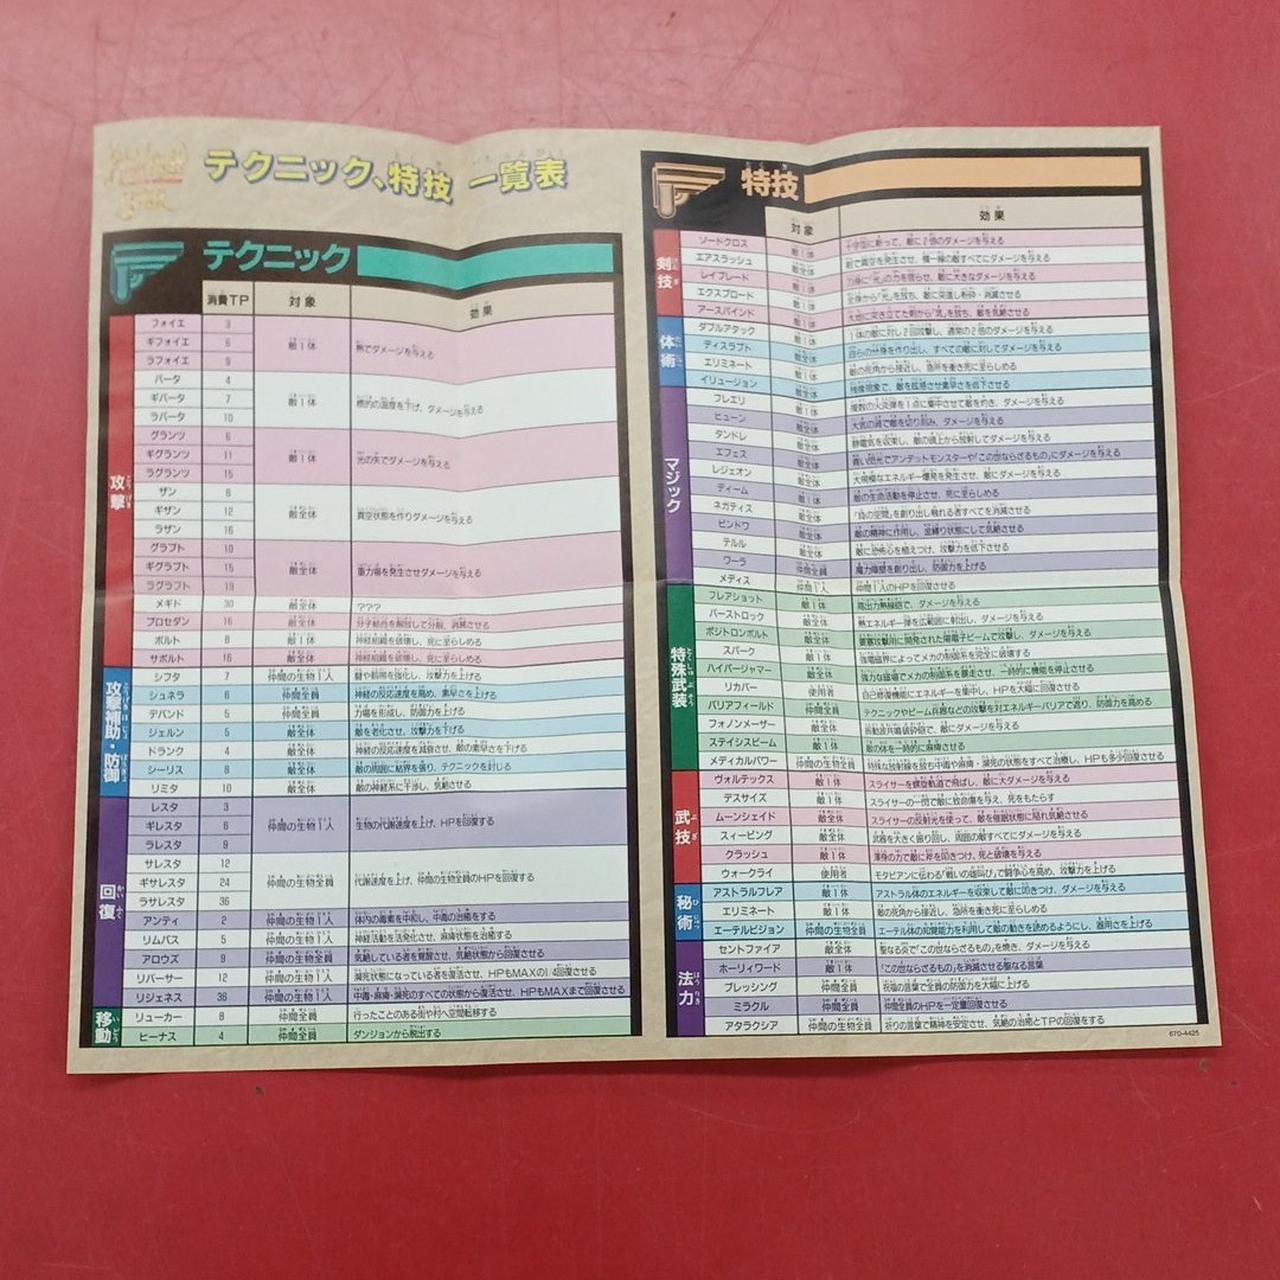 テクニック、特技 一覧表
テクニック
消費TP 対象 効果
攻撃
フォイエ 3
ギフォイエ 6 敵1体 熱でダメージを与える
ラフォイエ 9
バータ 4
ギバータ 7 敵1体 標的の温度を下げ、ダメージを与える
ラバータ 10
グランツ 6
ギグランツ 11 敵1体 光の矢でダメージを与える
ラグランツ 15
ザン 8
ギザン 12 敵全体 真空状態を作りダメージを与える
ラザン 16
グラブト 10
ギグラブト 15 敵全体 重力場を発生させダメージを与える
ラグラブト 19
メギド 30 敵全体 ???
プロセダン 16 敵全体 分子結合を解放して分解、消滅させる
ボルト 8 敵1体 神経組織を破壊し、死に至らしめる
サボルト 16 敵全体 神経組織を破壊し、死に至らしめる
攻撃補助・防御
シフタ 7 仲間の生物1人 腱や筋帯を強化し、攻撃力を上げる
シュネラ 6 仲間全員 神経の反応速度を高め、素早さを上げる
デバンド 5 仲間全員 力場を形成し、防御力を上げる
ジェルン 5 敵全体 敵を老化させ、攻撃力を下げる
ドランク 4 敵全体 神経の反応速度を減衰させ、敵の素早さを下げる
シーリス 8 敵全体 敵の周囲に結界を張り、テクニックを封じる
リミタ 10 敵全体 敵の神経系に干渉し、気絶させる
回復
レスタ 3
ギレスタ 6 仲間の生物1人 生物の代謝速度を上げ、HPを回復する
ラレスタ 9
サレスタ 12
ギサレスタ 24 仲間の生物全員 代謝速度を上げ、仲間の生物全員のHPを回復する
ラサレスタ 36
アンティ 2 仲間の生物1人 体内の毒素を中和し、中毒の治癒をする
リムパス 5 仲間の生物1人 神経活動を活発化させ、麻痺状態を治癒する
アロウズ 9 仲間の生物1人 気絶している者を覚醒させ、気絶状態から回復させる
リバーサー 12 仲間の生物1人 瀕死状態になっている者を復活させ、HPもMAXの1/4回復させる
リジェネス 36 仲間の生物1人 中毒・麻痺・瀕死のすべての状態から復活させ、HPもMAXまで回復させる
移動
リューカー 8 仲間全員 行ったことのある街や村へ空間転移する
ヒーナス 4 仲間全員 ダンジョンから脱出する
特技
対象 効果
剣技
ソードクロス 敵1体 十字型に斬って、敵に2倍のダメージを与える
エアスラッシュ 敵全体 剣で真空を発生させ、横一線の敵すべてにダメージを与える
レイブレード 敵1体 刀身に「光」の力を宿らせ、敵に大きなダメージを与える
エクスプロード 敵1体 全身から「光」を放ち、敵に突進し粉砕・消滅させる
アースバインド 敵1体 大地に突き立てた剣から「気」を放ち、敵を気絶させる
体術
ダブルアタック 敵1体 1体の敵に対し2回攻撃し、通常の2倍のダメージを与える
ディスラプト 敵全体 自らの分身を作り出し、すべての敵に対してダメージを与える
エリミネート 敵1体 敵の死角から接近し、急所を衝き死に至らしめる
イリュージョン 敵全体 残像現象で、敵を眩惑させ素早さを低下させる
マジック
フレエリ 敵1体 複数の火炎弾を1点に集中させて敵を灼き、ダメージを与える
ヒューン 敵全体 大気の渦で敵を切り刻み、ダメージを与える
タンドレ 敵全体 静電気を収束し、敵の頭上から放射してダメージを与える
エフェス 敵全体 青い閃光でアンデットモンスターや「この世ならざるもの」にダメージを与える
レジェオン 敵全体 大規模なエネルギー爆発を発生させ、敵にダメージを与える
ディーム 敵1体 敵の生命活動を停止させ、死に至らしめる
ネガティス 敵全体 「負の空間」を創り出し触れる者すべてを消滅させる
ビンドワ 敵全体 敵の精神に作用し、金縛り状態にして気絶させる
テルル 敵全体 敵に恐怖心を植えつけ、攻撃力を低下させる
ワーラ 仲間全員 魔力障壁を創り出し、防御力を上げる
メディス 仲間1人 仲間1人のHPを回復させる
特殊武装
フレアショット 敵1体 高出力熱線砲で、ダメージを与える
バーストロック 敵全体 熱エネルギー弾を広範囲に射出し、ダメージを与える
ポジトロンボルト 敵全体 要塞攻撃用に開発された陽電子ビームで攻撃し、ダメージを与える
スパーク 敵1体 強電磁界によってメカの制御系を完全に破壊する
ハイパージャマー 敵全体 強力な磁場でメカの制御系を暴走させ、一時的に機能を停止させる
リカバー 使用者 自己修復機能にエネルギーを集中し、HPを大幅に回復させる
バリアフィールド 仲間全員 テクニックやビーム兵器などの攻撃を対エネルギーバリアで遮り、防御力を高める
フォノンメーザー 敵全体 振動波共鳴破砕砲で、敵にダメージを与える
ステイシスビーム 敵1体 敵の体を一時的に麻痺させる
メディカルパワー 仲間の生物全員 特殊な放射線を放ち中毒や麻痺・瀕死の状態をすべて治癒し、HPも多少回復させる
武技
ヴォルテックス 敵1体 スライサーを螺旋軌道で飛ばし、敵に大ダメージを与える
デスサイズ 敵1体 スライサーの一閃で敵に致命傷を与え、死をもたらす
ムーンシェイド 敵全体 スライサーの反射光を使って、敵を催眠状態に陥れ気絶させる
スィーピング 敵全体 武器を大きく振り回し、周囲の敵すべてにダメージを与える
クラッシュ 敵1体 渾身の力で敵に斧を叩きつけ、死と破壊を与える
ウォークライ 使用者 モタビアンに伝わる「戦いの雄叫び」で闘争心を高め、攻撃力を上げる
秘術
アストラルフレア 敵1体 アストラル体のエネルギーを収束して敵に叩きつけ、ダメージを与える
エリミネート 敵1体 敵の死角から接近し、急所を衝き死に至らしめる
エーテルビジョン 仲間の生物全員 エーテル体の知覚能力を利用して敵の動きを読めるようにし、器用さを上げる
法力
セントファイア 敵全体 聖なる炎で「この世ならざるもの」を焼き、ダメージを与える
ホーリィワード 敵1体 「この世ならざるもの」を消滅させる聖なる言葉
ブレッシング 仲間全員 祝福の言葉で全員の防御力を大幅に上げる
ミラクル 仲間全員 仲間全員のHPを一定量回復させる
アタラクシア 仲間の生物全員 祈りの言葉で精神を安定させ、気絶の治癒とTPの回復をする
670-4425